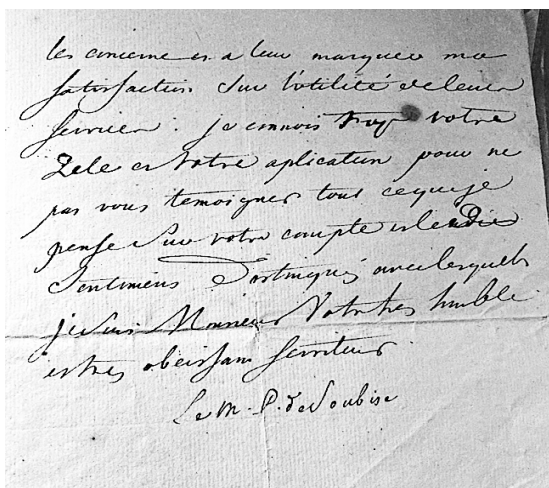 les concerne et a leur marquer ma
satisfaction Sur l'utilité de leurs
services. je connois trop votre
Zele et votre aplication pour ne
pas vous temoigner tout ce que je
pense Sur votre compte et les
Sentimens Distingués avec lesquels
je Suis Monsieur Votre tres humble
et tres obeissant Serviteur
Le M. P. de Soubise